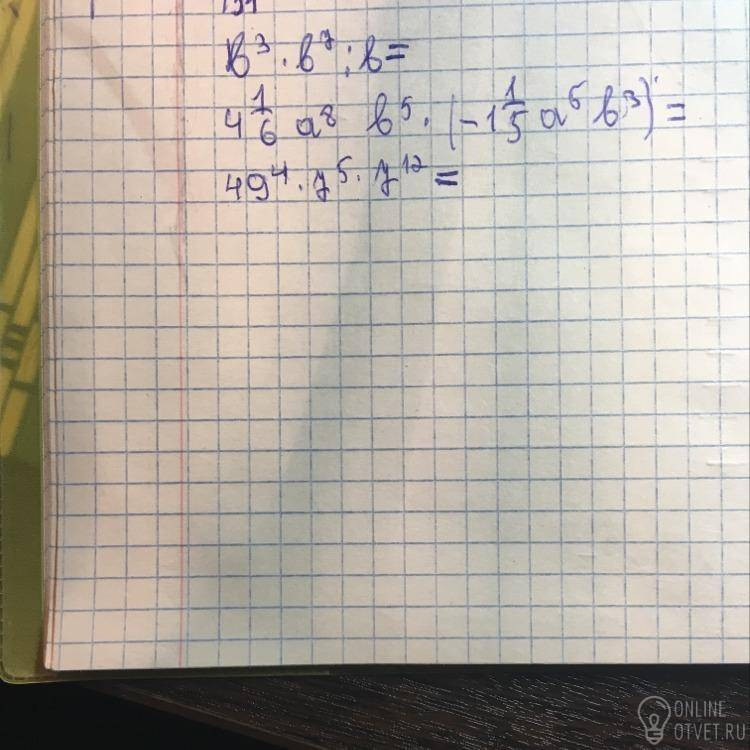 b³ · b⁷ : b =
4 1/6 a⁸ b⁵ · (-1 1/5 a⁵ b³) =
49⁴ · y⁵ · y¹² =
ONLINE
OTVET.RU